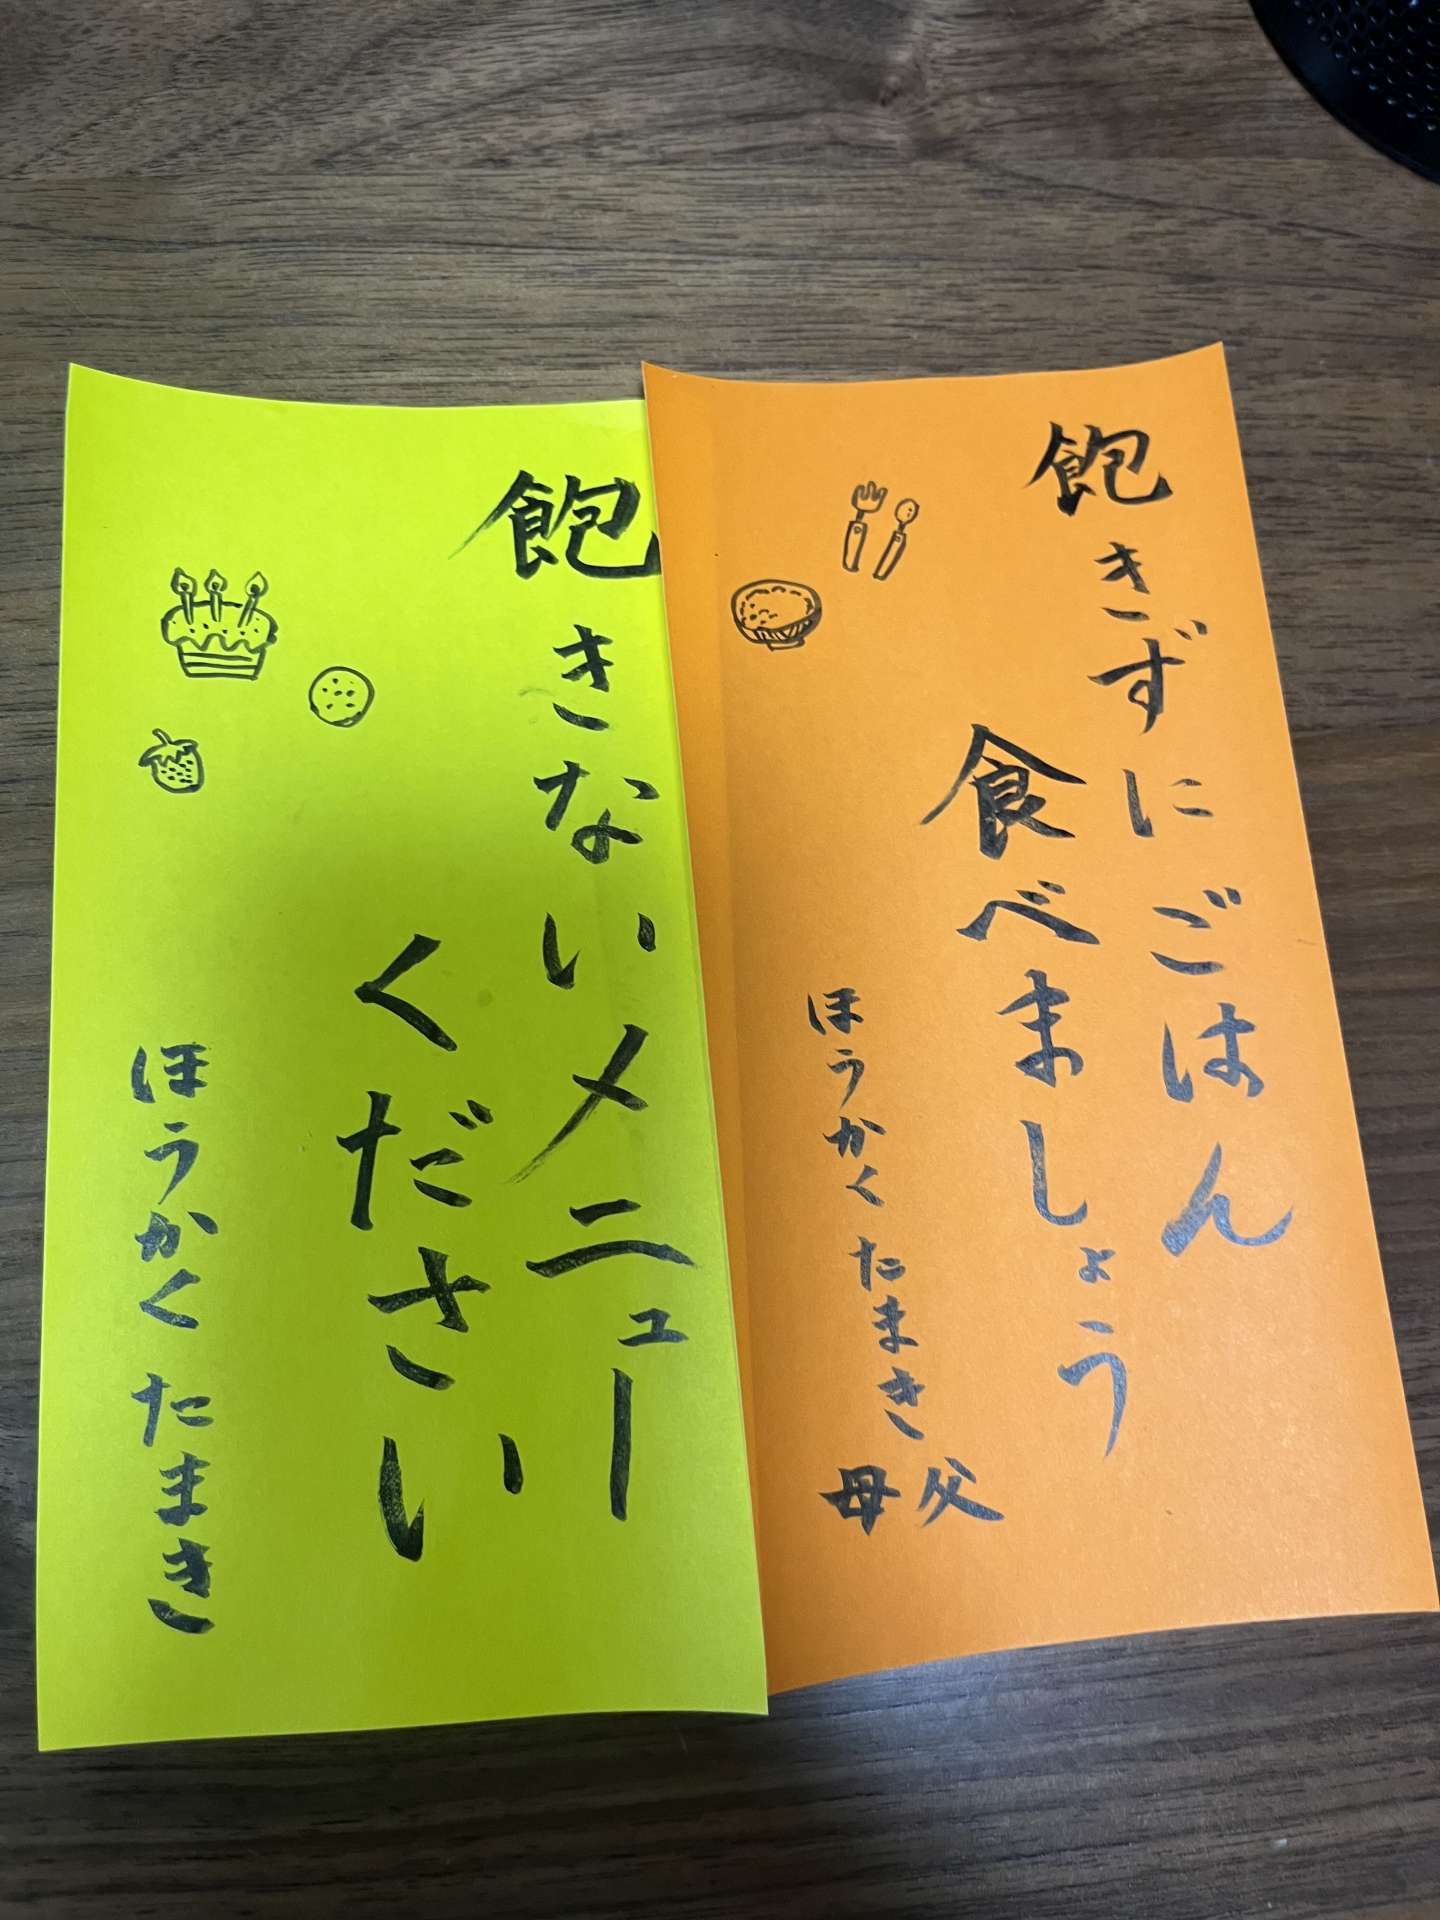 飽きずにごはん
食べましょう
ほうかくたまき
父
母
飽きないメニュー
ください
ほうかくたまき